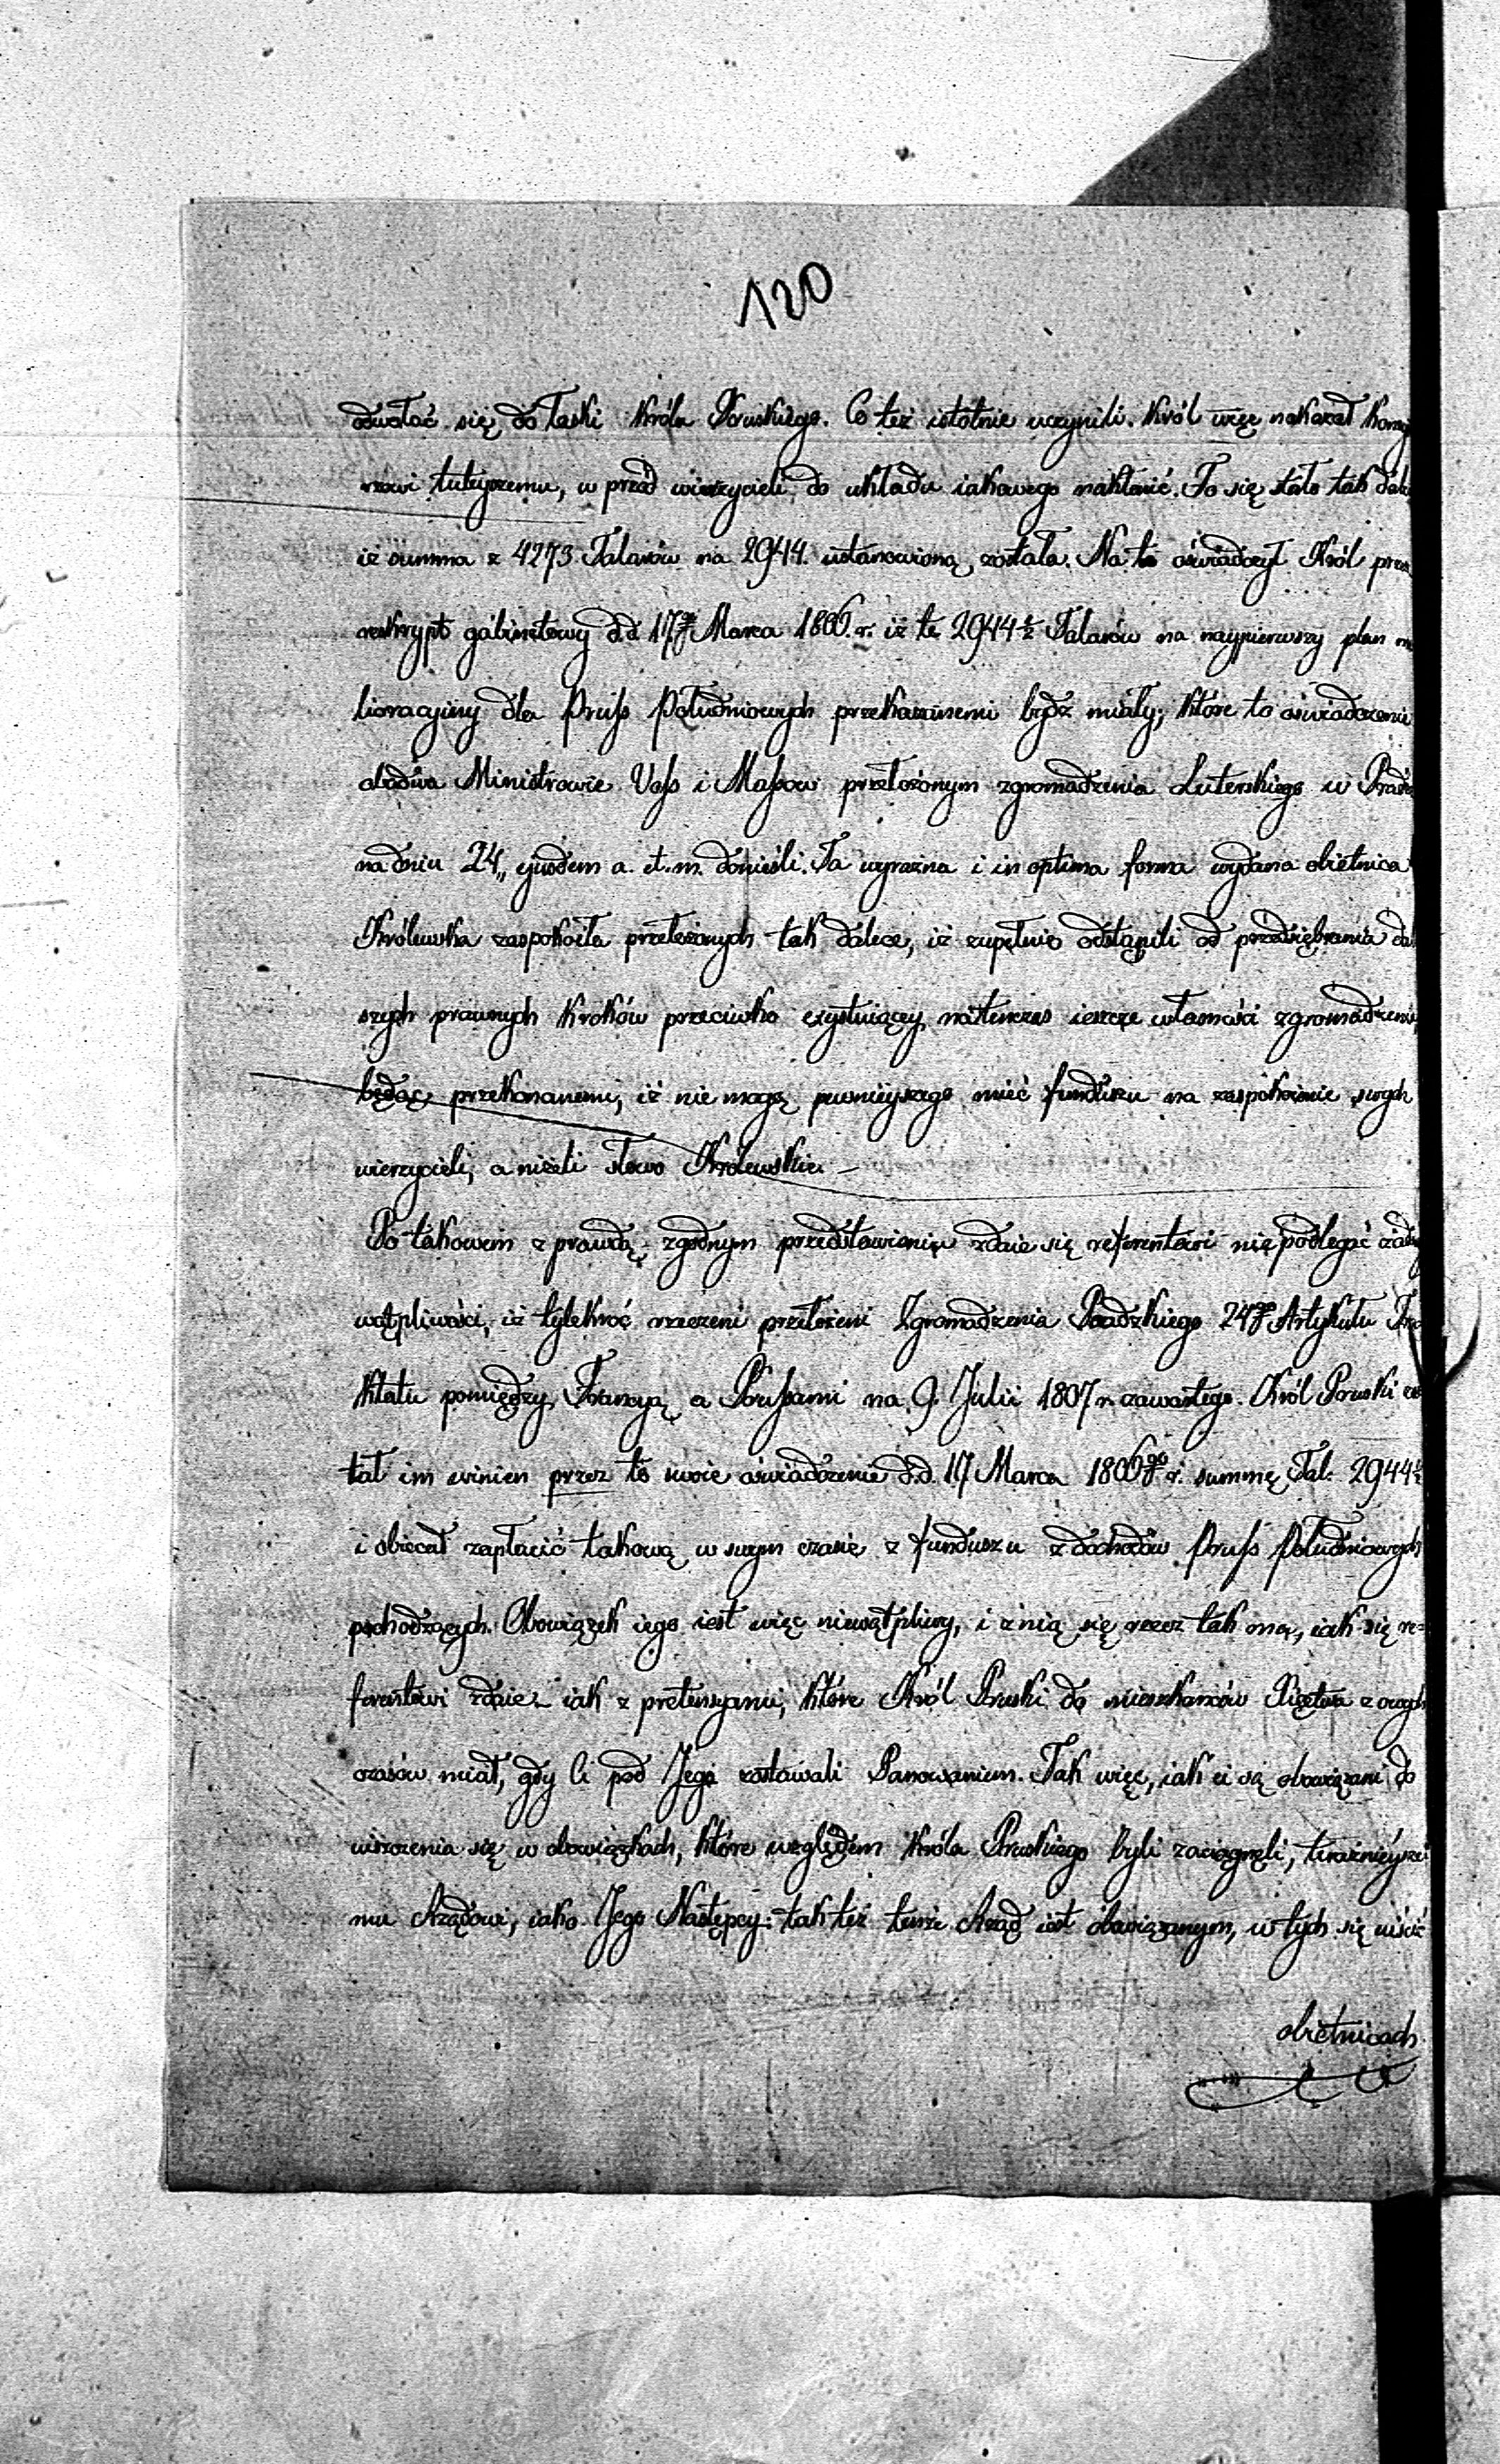 120
odwołać się do łaski Króla Pruskiego. Co też istotnie uczynili. Król więc nakazał
tuteyszemu, w przód wierzycieli do układu iakowego nakłonić. To się stało tak
iż summa z 4273 Talarów na 2944. ustanowioną została. Na to oświadczył Król
reskrypt gabinetowy d.d. 17go Marca 1806. r. iż te 2944 Talarów na naypierwszy plan
lioracyiny dla Pruss Południowych przekazanemi bydź miały; które to oświadczenie
obadwa Ministrowie Voss i Massow przełożonym zgromadzenia Luterskiego w
na dniu 24„ ejusdem a. et. m. donieśli. Ta wyraźna i in optima forma wydana obietnica
Królewska zaspokoiła przełożonych tak dalece, iż zupełnie odstąpili od przedsiębrania
szych prawnych kroków przeciwko exystuiącey natenczas ieszcze własności zgromadzenia
będąc przekonanemi, iż nie mogą pewnieyszego mieć funduszu na zaspokoienie swych
wierzycieli, a niżeli słowo Królewskie –
Po takowem z prawdą zgodnym przedstawieniu zdaie się referentowi nie podlegać
wątpliwości, iż tylekroć rzeczeni przełożeni Zgromadzenia 24go Artykułu
ktatu pomiędzy Francyą a Prussami na 9. Julii 1807 r. zawartego. Król Pruski
tał im winien przez to swoie oświadczenie d.d. 17 Marca 1806go r. summę Tal. 2944
i obiecał zapłacić takową w swym czasie z funduszu z dochodów Pruss Południowych
pochodzących. Obowiązek iego iest więc niewątpliwy, i z nią się rzecz tak ma, iak się re=
ferentowi zdaie iak z pretensyami, które Król Pruski do mieszkańców Xięstwa z owych
czasów miał, gdy ci pod Jego zostawali Panowaniem. Tak więc, iak ci są obowiązani do
uiszczenia się w obowiązkach, które względem Króla Pruskiego byli zaciągnęli,
mu Rządowi, iako Jego Następcy: tak też tenże Rząd iest obowiązanym, w tych się uiścić
obietnicach